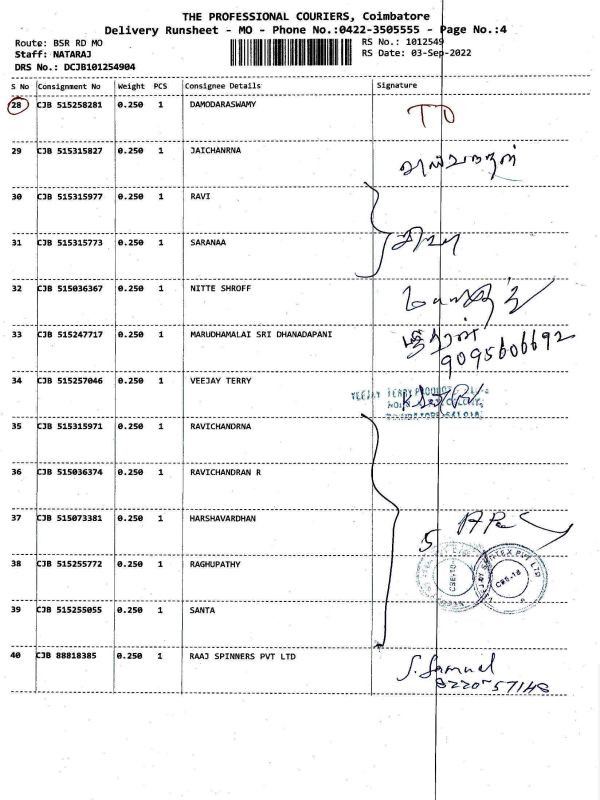 THE PROFESSIONAL COURIERS, Coimbatore
Delivery Runsheet - MO - Phone No.:0422-3505555 - Page No.:4
Route: BSR RD MO
RS No.: 1012549
Staff: NATARAJ
RS Date: 03-Sep-2022
DRS No.: DCJB101254904
S No Consignment No Weight PCS Consignee Details Signature
28 CJB 515258281 0.250 1 DAMODARASWAMY TD
29 CJB 515315827 0.250 1 JAICHANRNA
30 CJB 515315977 0.250 1 RAVI
31 CJB 515315773 0.250 1 SARANAA
32 CJB 515036367 0.250 1 NITTE SHROFF
33 CJB 515247717 0.250 1 MARUDHAMALAI SRI DHANADAPANI
9095606692
34 CJB 515257046 0.250 1 VEEJAY TERRY
VEEJAY TERRY PRODUCTS
35 CJB 515315971 0.250 1 RAVICHANDRNA
36 CJB 515036374 0.250 1 RAVICHANDRAN R
37 CJB 515073381 0.250 1 HARSHAVARDHAN
5
38 CJB 515255772 0.250 1 RAGHUPATHY
CBE-18
39 CJB 515255055 0.250 1 SANTA
40 CJB 88818385 0.250 1 RAAJ SPINNERS PVT LTD
S. Samuel